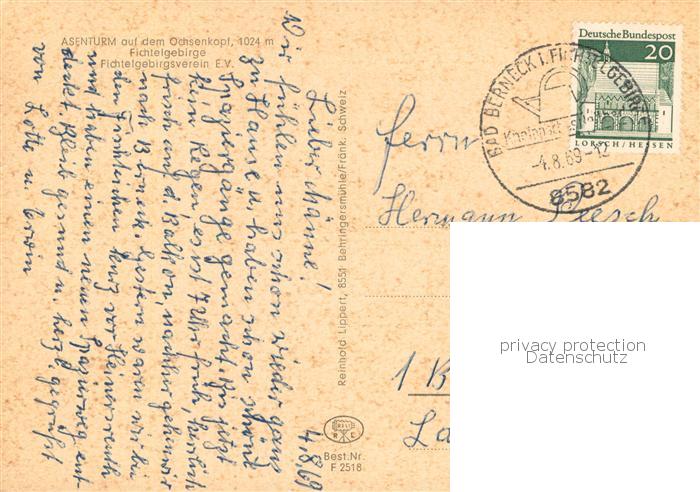 ASENTURM auf dem Ochsenkopf, 1024 m
Fichtelgebirge
Fichtelgebirgsverein E.V.
4.8.69
Lieber Männe!
Wir fühlen uns schon wieder ganz
zu Hause u. haben schon schöne
Spaziergänge gemacht. Bis jetzt
kein Regen, es ist 7 Uhr früh, herrlich
frisch auf d. Balkon, nachher gehen wir
nach Berneck. Gestern waren wir bei
den Fröhlichen kurz vor Heinersreuth
und haben einen neuen Spazierweg ent-
deckt. Bleib gesund u. herzl. gegrüßt
von Lotte u. Erwin
Reinhold Lippert, 8551 Behringersmühle/Fränk. Schweiz
Best.Nr.
F 2518
Deutsche Bundespost
20
LORSCH/HESSEN
BAD BERNECK I. FICHTELGEBIRGE
-4.8.69-12
8582
Herrn
Hermann
1 B
La
privacy protection
Datenschutz